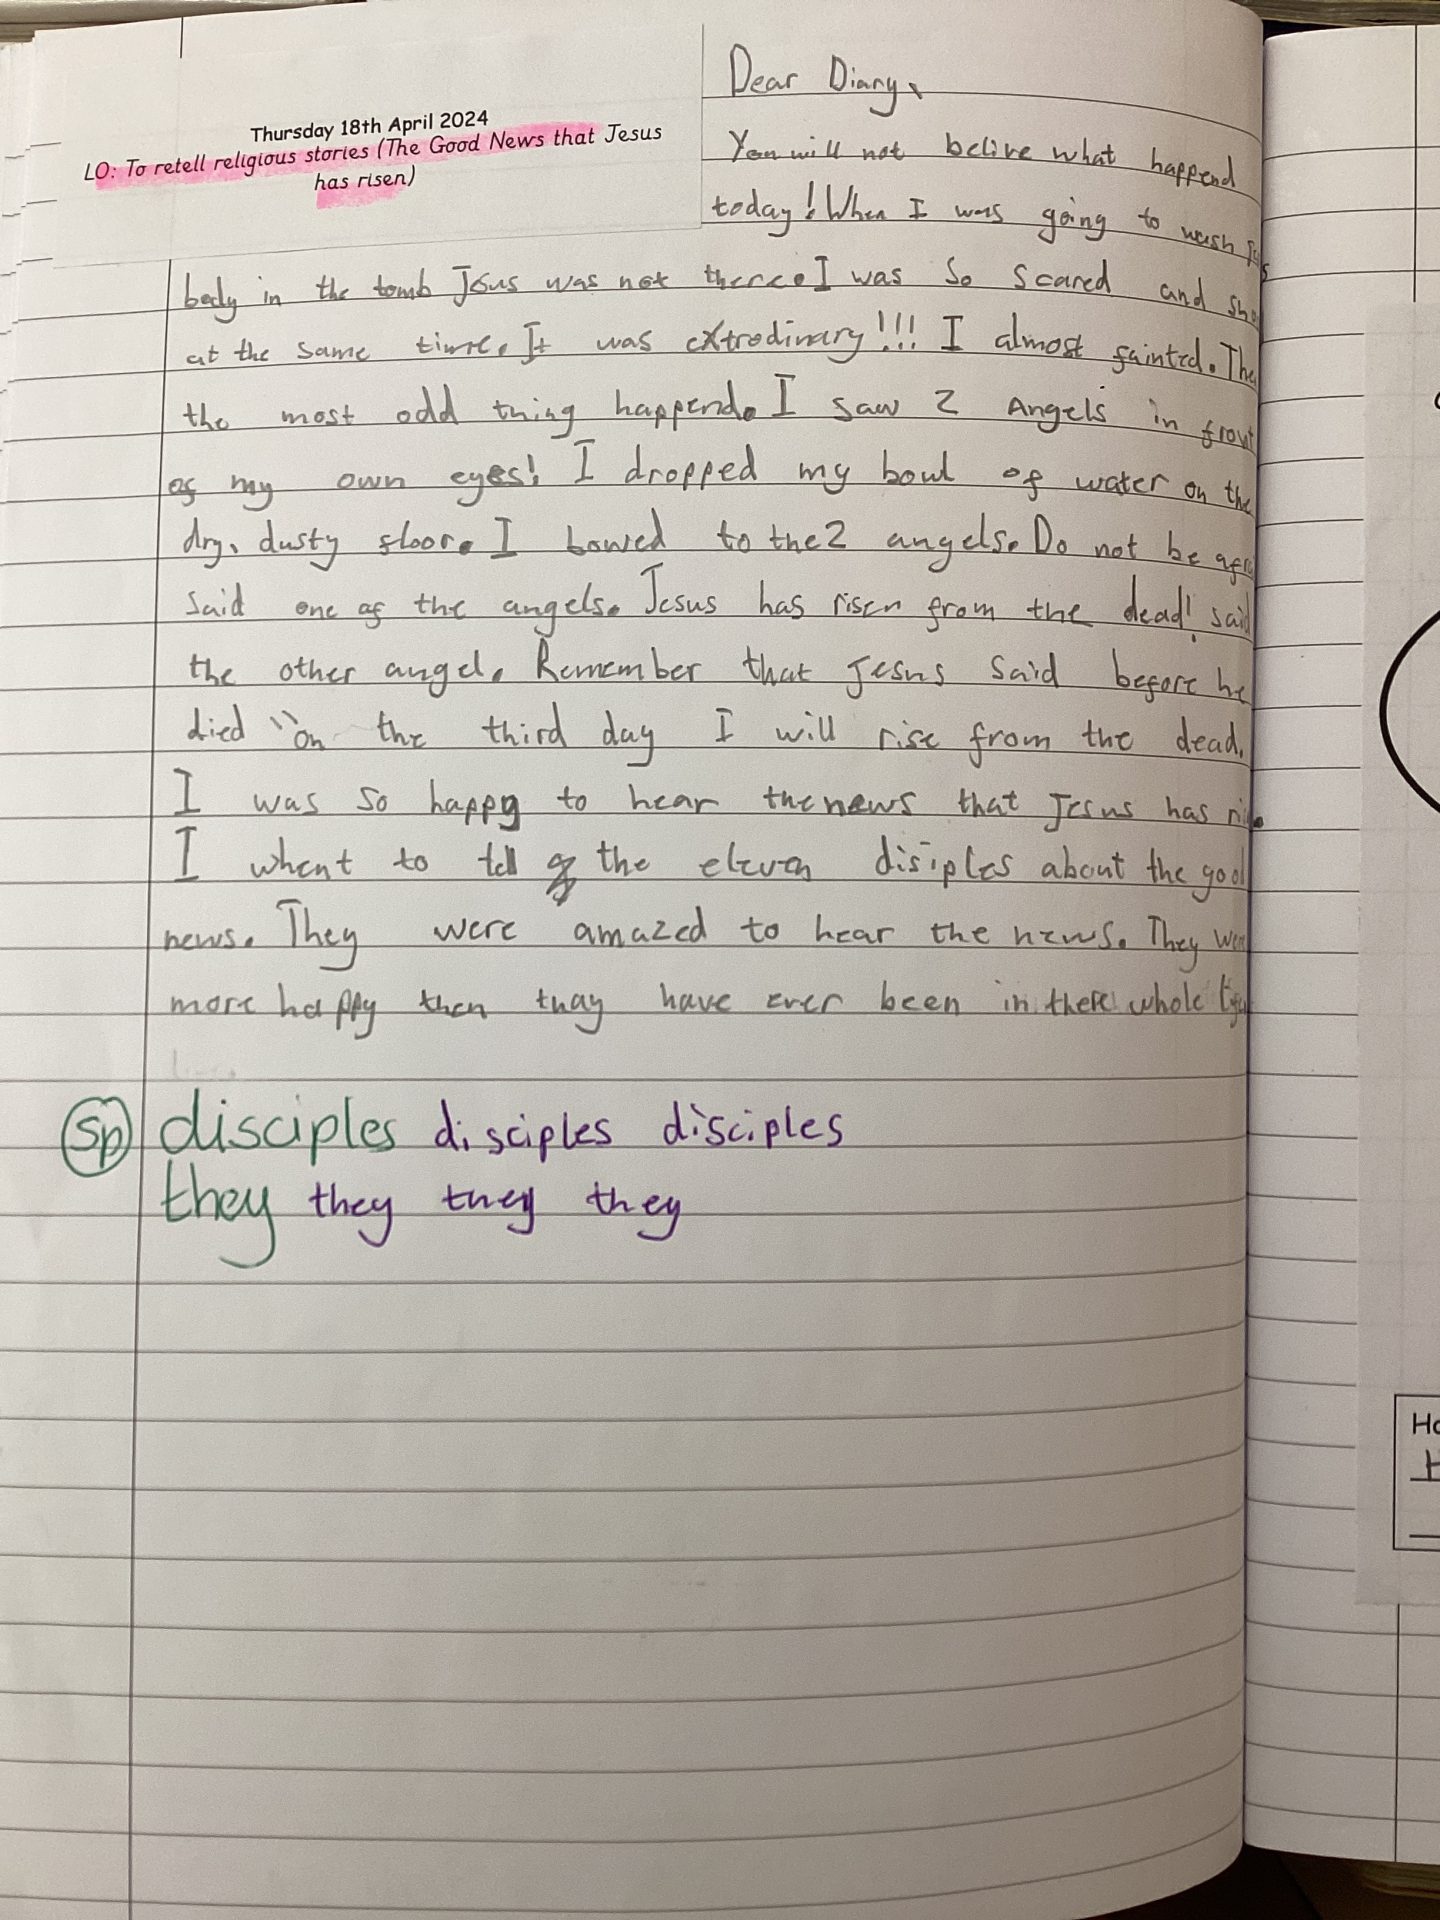 Thursday 18th April 2024
LO: To retell religious stories (The Good News that Jesus
has risen)
Dear Diary,
You will not belive what happend
today! When I was going to wash
body in the tomb Jesus was not there. I was so scared and
at the same time. It was extrodinary!!! I almost fainted.
the most odd thing happend. I saw 2 Angels in front
of my own eyes! I dropped my bowl of water on the
dry, dusty floor. I bowed to the 2 angels. Do not be
said one of the angels. Jesus has risen from the dead! said
the other angel. Remember that Jesus said before he
died "on the third day I will rise from the dead.
I was so happy to hear the news that Jesus has
I whent to tell the eleven disiples about the good
news. They were amazed to hear the news. They were
more happy then thay have ever been in there whole
sp disciples disciples disciples
they they they they
Ho
H